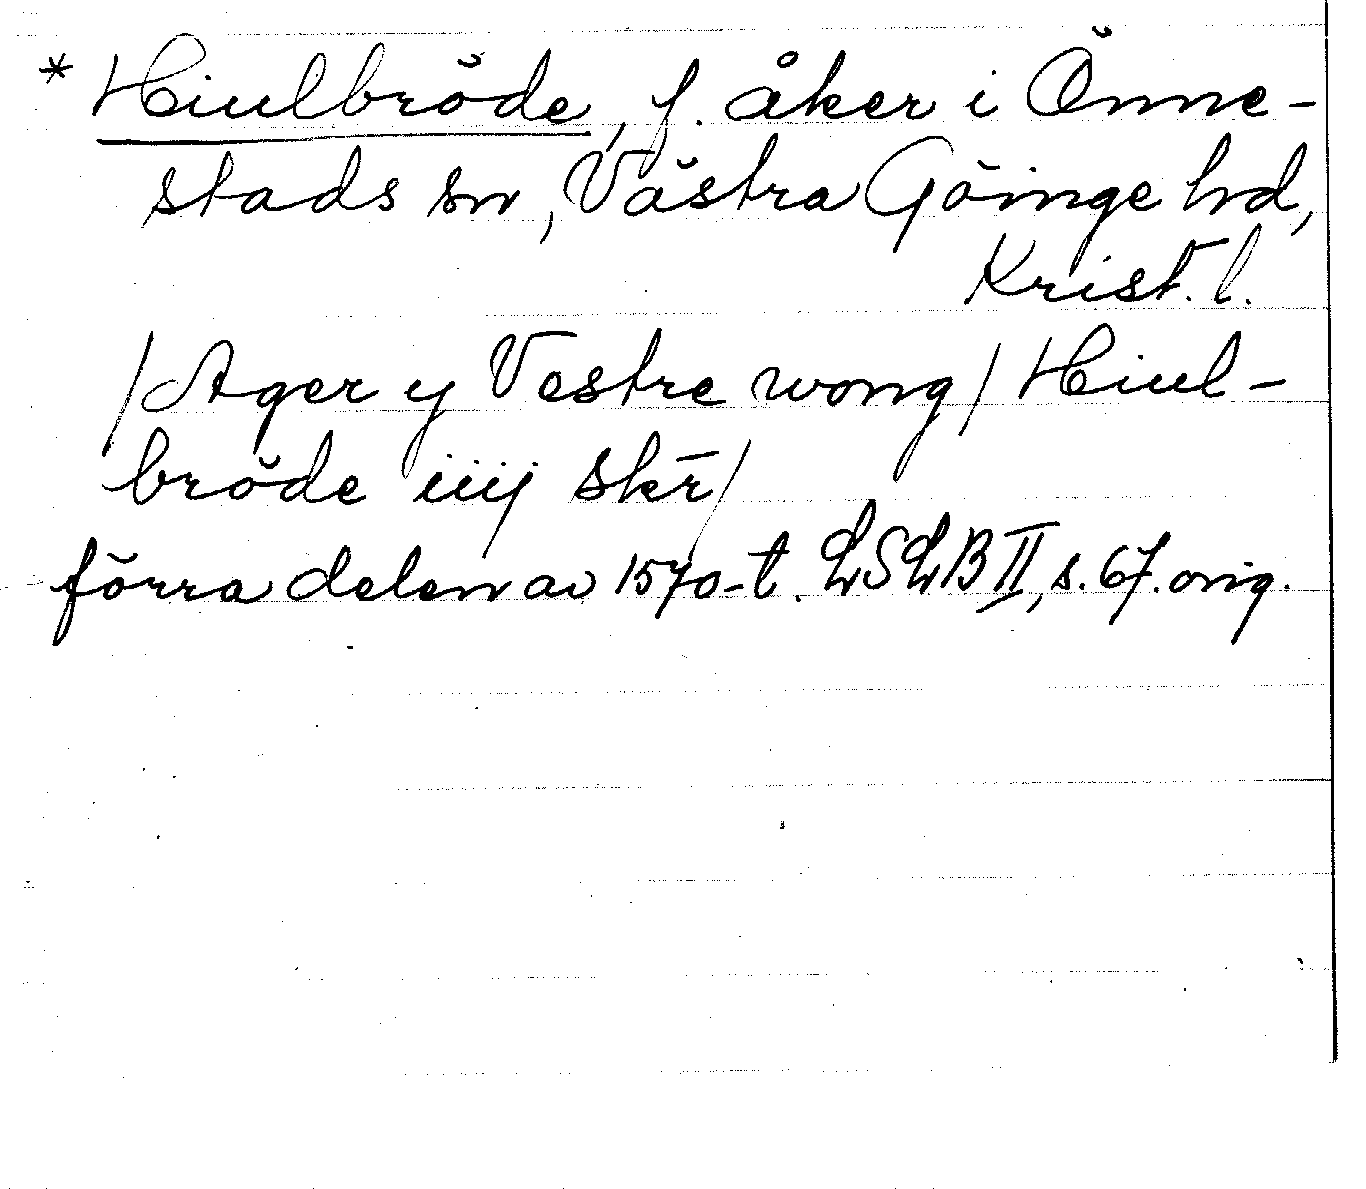 * Hiulbröde, f. åker i Önne-
stads sn, Västra Göinge hd,
Krist. l.
/Ager y Vestre wong/ Hiul-
bröde iiij skr̄/
förra delen av 1570-t. LSLB II, s. 67. orig.